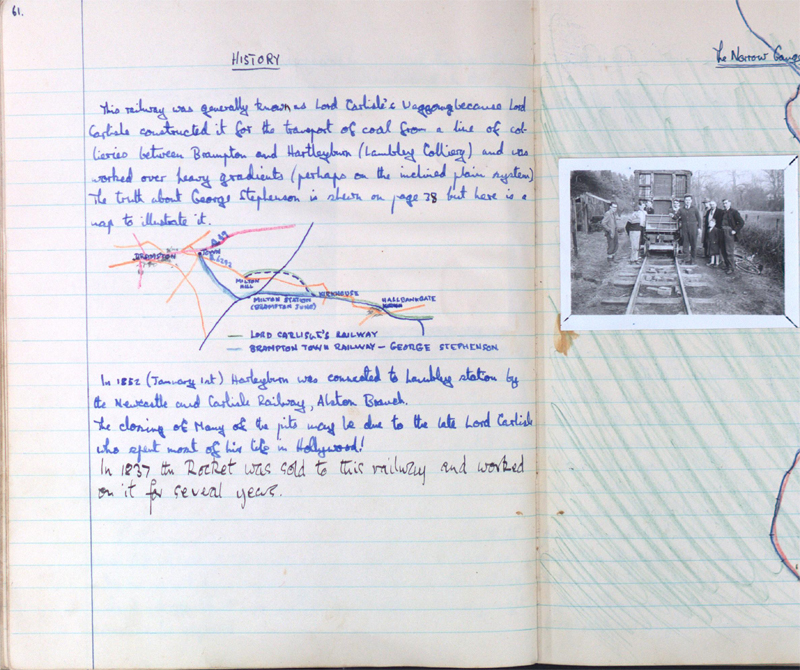 61.
HISTORY
This railway was generally known as Lord Carlisle's Waggonway because Lord
Carlisle constructed it for the transport of coal from a line of col-
lieries between Brampton and Hartleyburn (Lambley Colliery) and was
worked over heavy gradients (perhaps on the inclined plain system)
The truth about George Stephenson is shewn on page 28 but here is a
map to illustrate it.
A.69
BRAMPTON
TOWN
B6292
MILTON
HILL
MILTON STATION
(BRAMPTON JUNC)
KIRKHOUSE
HALLBANKGATE
LORD CARLISLE'S RAILWAY
BRAMPTON TOWN RAILWAY - GEORGE STEPHENSON
In 1852 (January 1st) Harleyburn was connected to Lambley station by
the Newcastle and Carlisle Railway, Alston Branch.
The closing of Many of the pits may be due to the late Lord Carlisle
who spent most of his life in Hollywood!
In 1837 the Rocket was sold to this railway and worked
on it for several years.
The Narrow Gauge